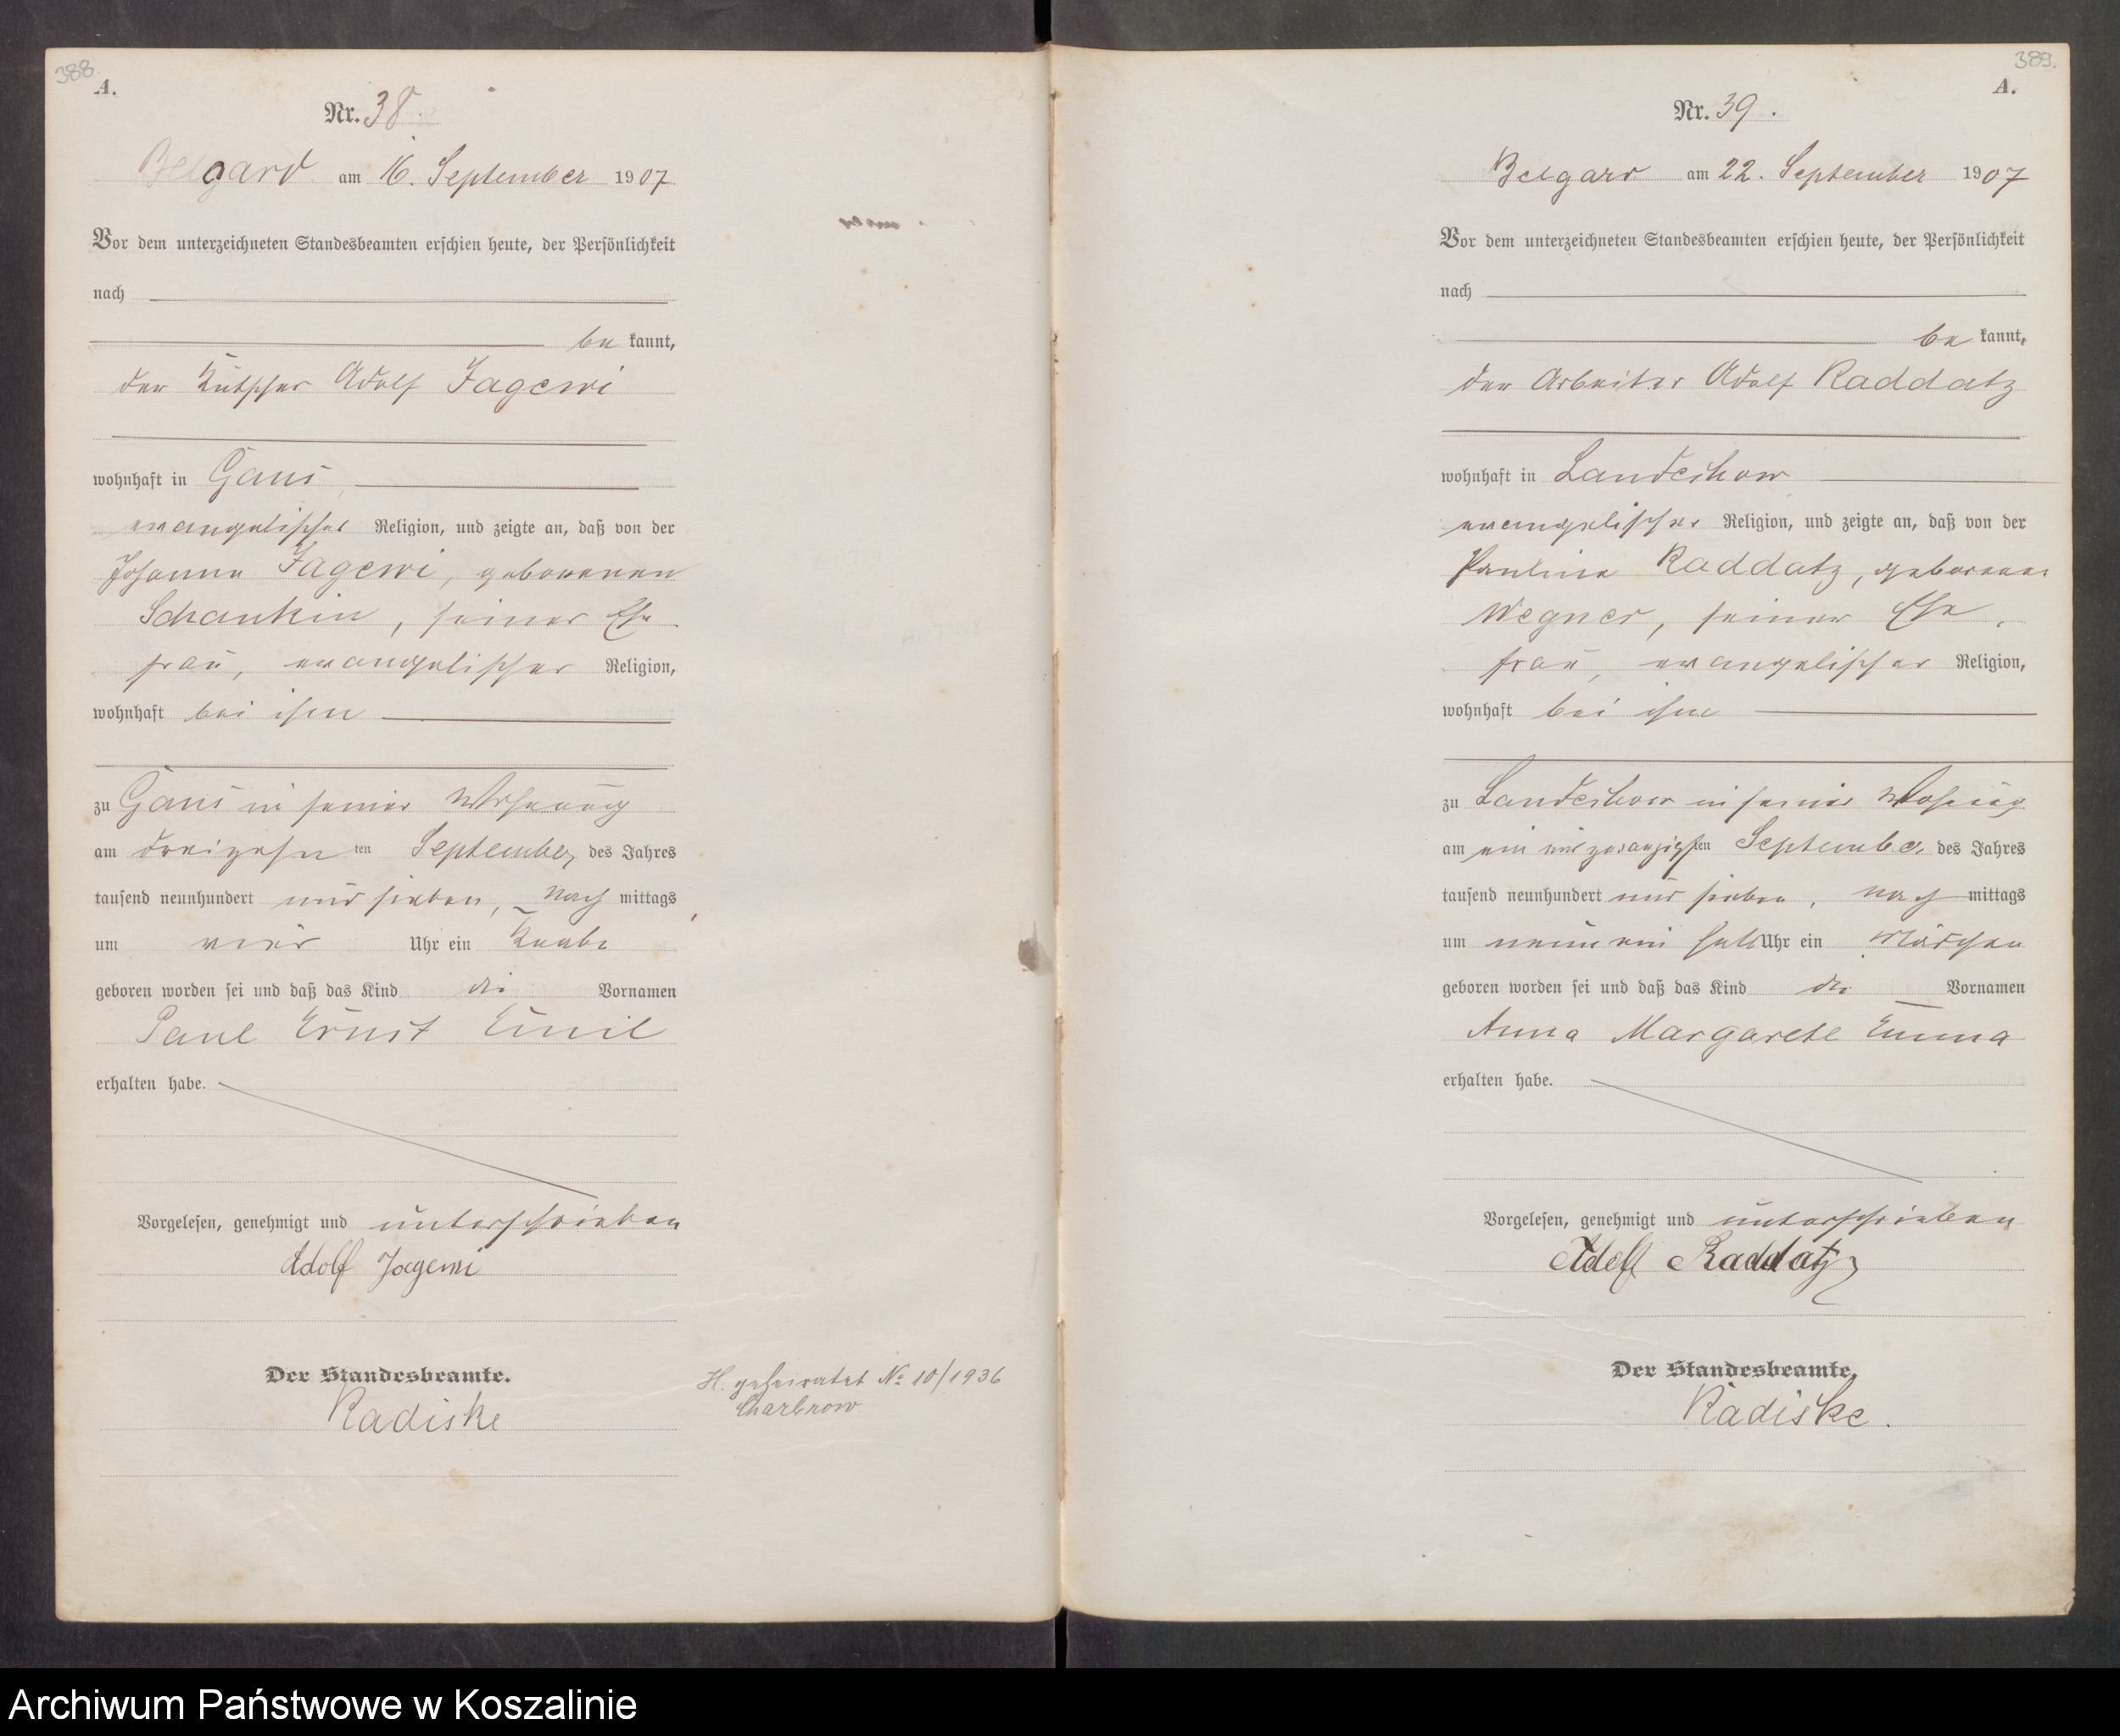 388.
A.
Nr. 38.
Belgard am 16. September 1907
Vor dem unterzeichneten Standesbeamten erschien heute, der Persönlichkeit
nach
be kannt,
der Kutscher Adolf Jagewi
wohnhaft in Gans
evangelischer Religion, und zeigte an, daß von der
Johanne Jagewi, geborenen
Schankin, seiner Ehe
frau, evangelischer Religion,
wohnhaft bei ihm
zu Gans in seiner Wohnung
am dreizehn ten September, des Jahres
tausend neunhundert und sieben, Nach mittags
um vier Uhr ein Knabe
geboren worden sei und daß das Kind die Vornamen
Paul Ernst Emil
erhalten habe.
Vorgelesen, genehmigt und unterschrieben
Adolf Jagewi
Der Standesbeamte.
Radiske
H. geheiratet No 10/1936
Charbrow
389.
A.
Nr. 39.
Belgard am 22. September 1907
Vor dem unterzeichneten Standesbeamten erschien heute, der Persönlichkeit
nach
be kannt,
der Arbeiter Adolf Raddatz
wohnhaft in Landechow
evangelischer Religion, und zeigte an, daß von der
Pauline Raddatz, geborenen
Wegner, seiner Ehe
frau, evangelischer Religion,
wohnhaft bei ihm
zu Landechow in seiner Wohnung
am ein und zwanzigsten September des Jahres
tausend neunhundert und sieben, nach mittags
um neun ein halb Uhr ein Mädchen
geboren worden sei und daß das Kind die Vornamen
Anna Margarete Emma
erhalten habe.
Vorgelesen, genehmigt und unterschrieben
Adolf Raddatz
Der Standesbeamte.
Radiske.
Archiwum Państwowe w Koszalinie